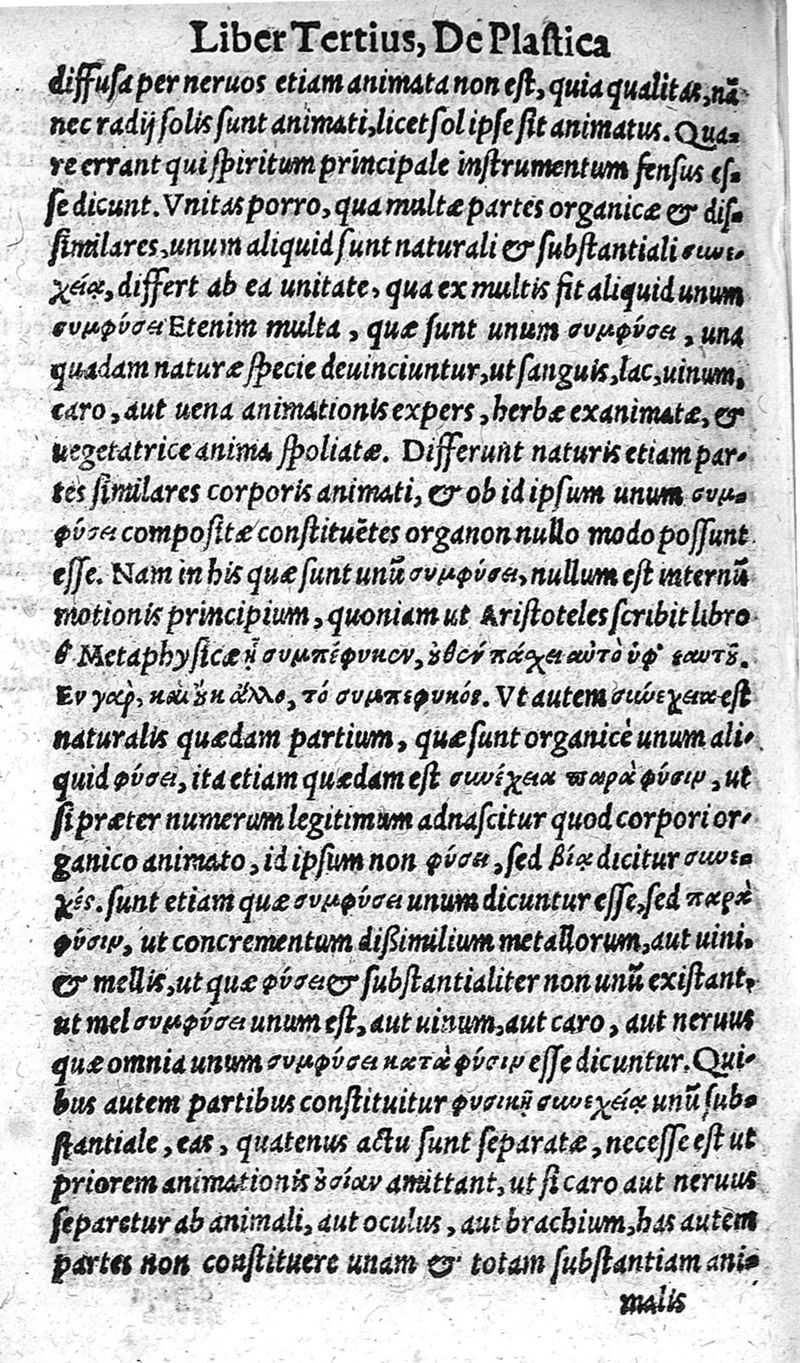 Liber Tertius, De Plastica
diffusa per neruos etiam animata non est, quia qualitas, nã
nec radij solis sunt animati, licet sol ipse sit animatus. Qua-
re errant qui spiritum principale instrumentum sensus es-
se dicunt. Vnitas porro, qua multæ partes organicæ & dis-
similares, unum aliquid sunt naturali & substantiali συνε-
χείᾳ, differt ab ea unitate, qua ex multis fit aliquid unum
συμφύσει Etenim multa, quæ sunt unum συμφύσει, una
quadam naturæ specie deuinciuntur, ut sanguis, lac, uinum,
caro, aut uena animationis expers, herbæ exanimatæ, &
uegetatrice anima spoliatæ. Differunt naturis etiam par-
tes similares corporis animati, & ob id ipsum unum συμ-
φύσει compositæ constituẽtes organon nullo modo possunt
esse. Nam in his quæ sunt unũ συμφύσει, nullum est internũ
motionis principium, quoniam ut Aristoteles scribit libro
Metaphysicæ ᾗ συμπέφυκεν, ȣ̓θὲν πάχει αὐτὸ ὑφ' ἑαυτȣ͂.
Εν γαρ, και ȣ̓κ ἄλλο, τό συμπεφυκός. Vt autem συνέχεια est
naturalis quædam partium, quæ sunt organicè unum ali-
quid φύσει, ita etiam quædam est συνέχεια παρὰ φύσιν, ut
si præter numerum legitimum adnascitur quod corpori or-
ganico animato, id ipsum non φύσει, sed βίᾳ dicitur συνε-
χές. sunt etiam quæ συμφύσει unum dicuntur esse, sed παρὰ
φύσιν, ut concrementum dißimilium metallorum, aut uini,
& mellis, ut quæ φύσει & substantialiter non unũ existant,
ut mel συμφύσει unum est, aut uinum, aut caro, aut neruus
quæ omnia unum συμφύσει κατὰ φύσιν esse dicuntur. Qui-
bus autem partibus constituitur φυσικῇ συνεχείᾳ unũ sub-
stantiale, eas, quatenus actu sunt separatæ, necesse est ut
priorem animationis ȣ̓σίαν amittant, ut si caro aut neruus
separetur ab animali, aut oculus, aut brachium, has autem
partes non constituere unam & totam substantiam ani-
malis